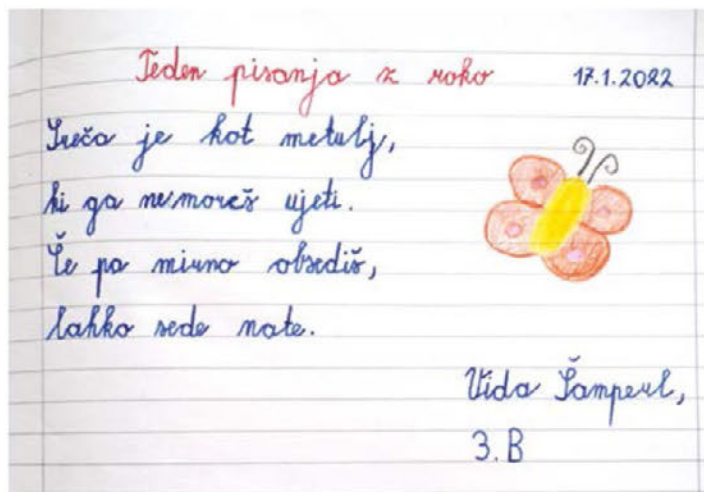 Teden pisanja z roko 17.1.2022
Sreča je kot metulj,
ki ga ne moreš ujeti.
Če pa mirno obsediš,
lahko sede nate.
Vida Šamperl,
3.B